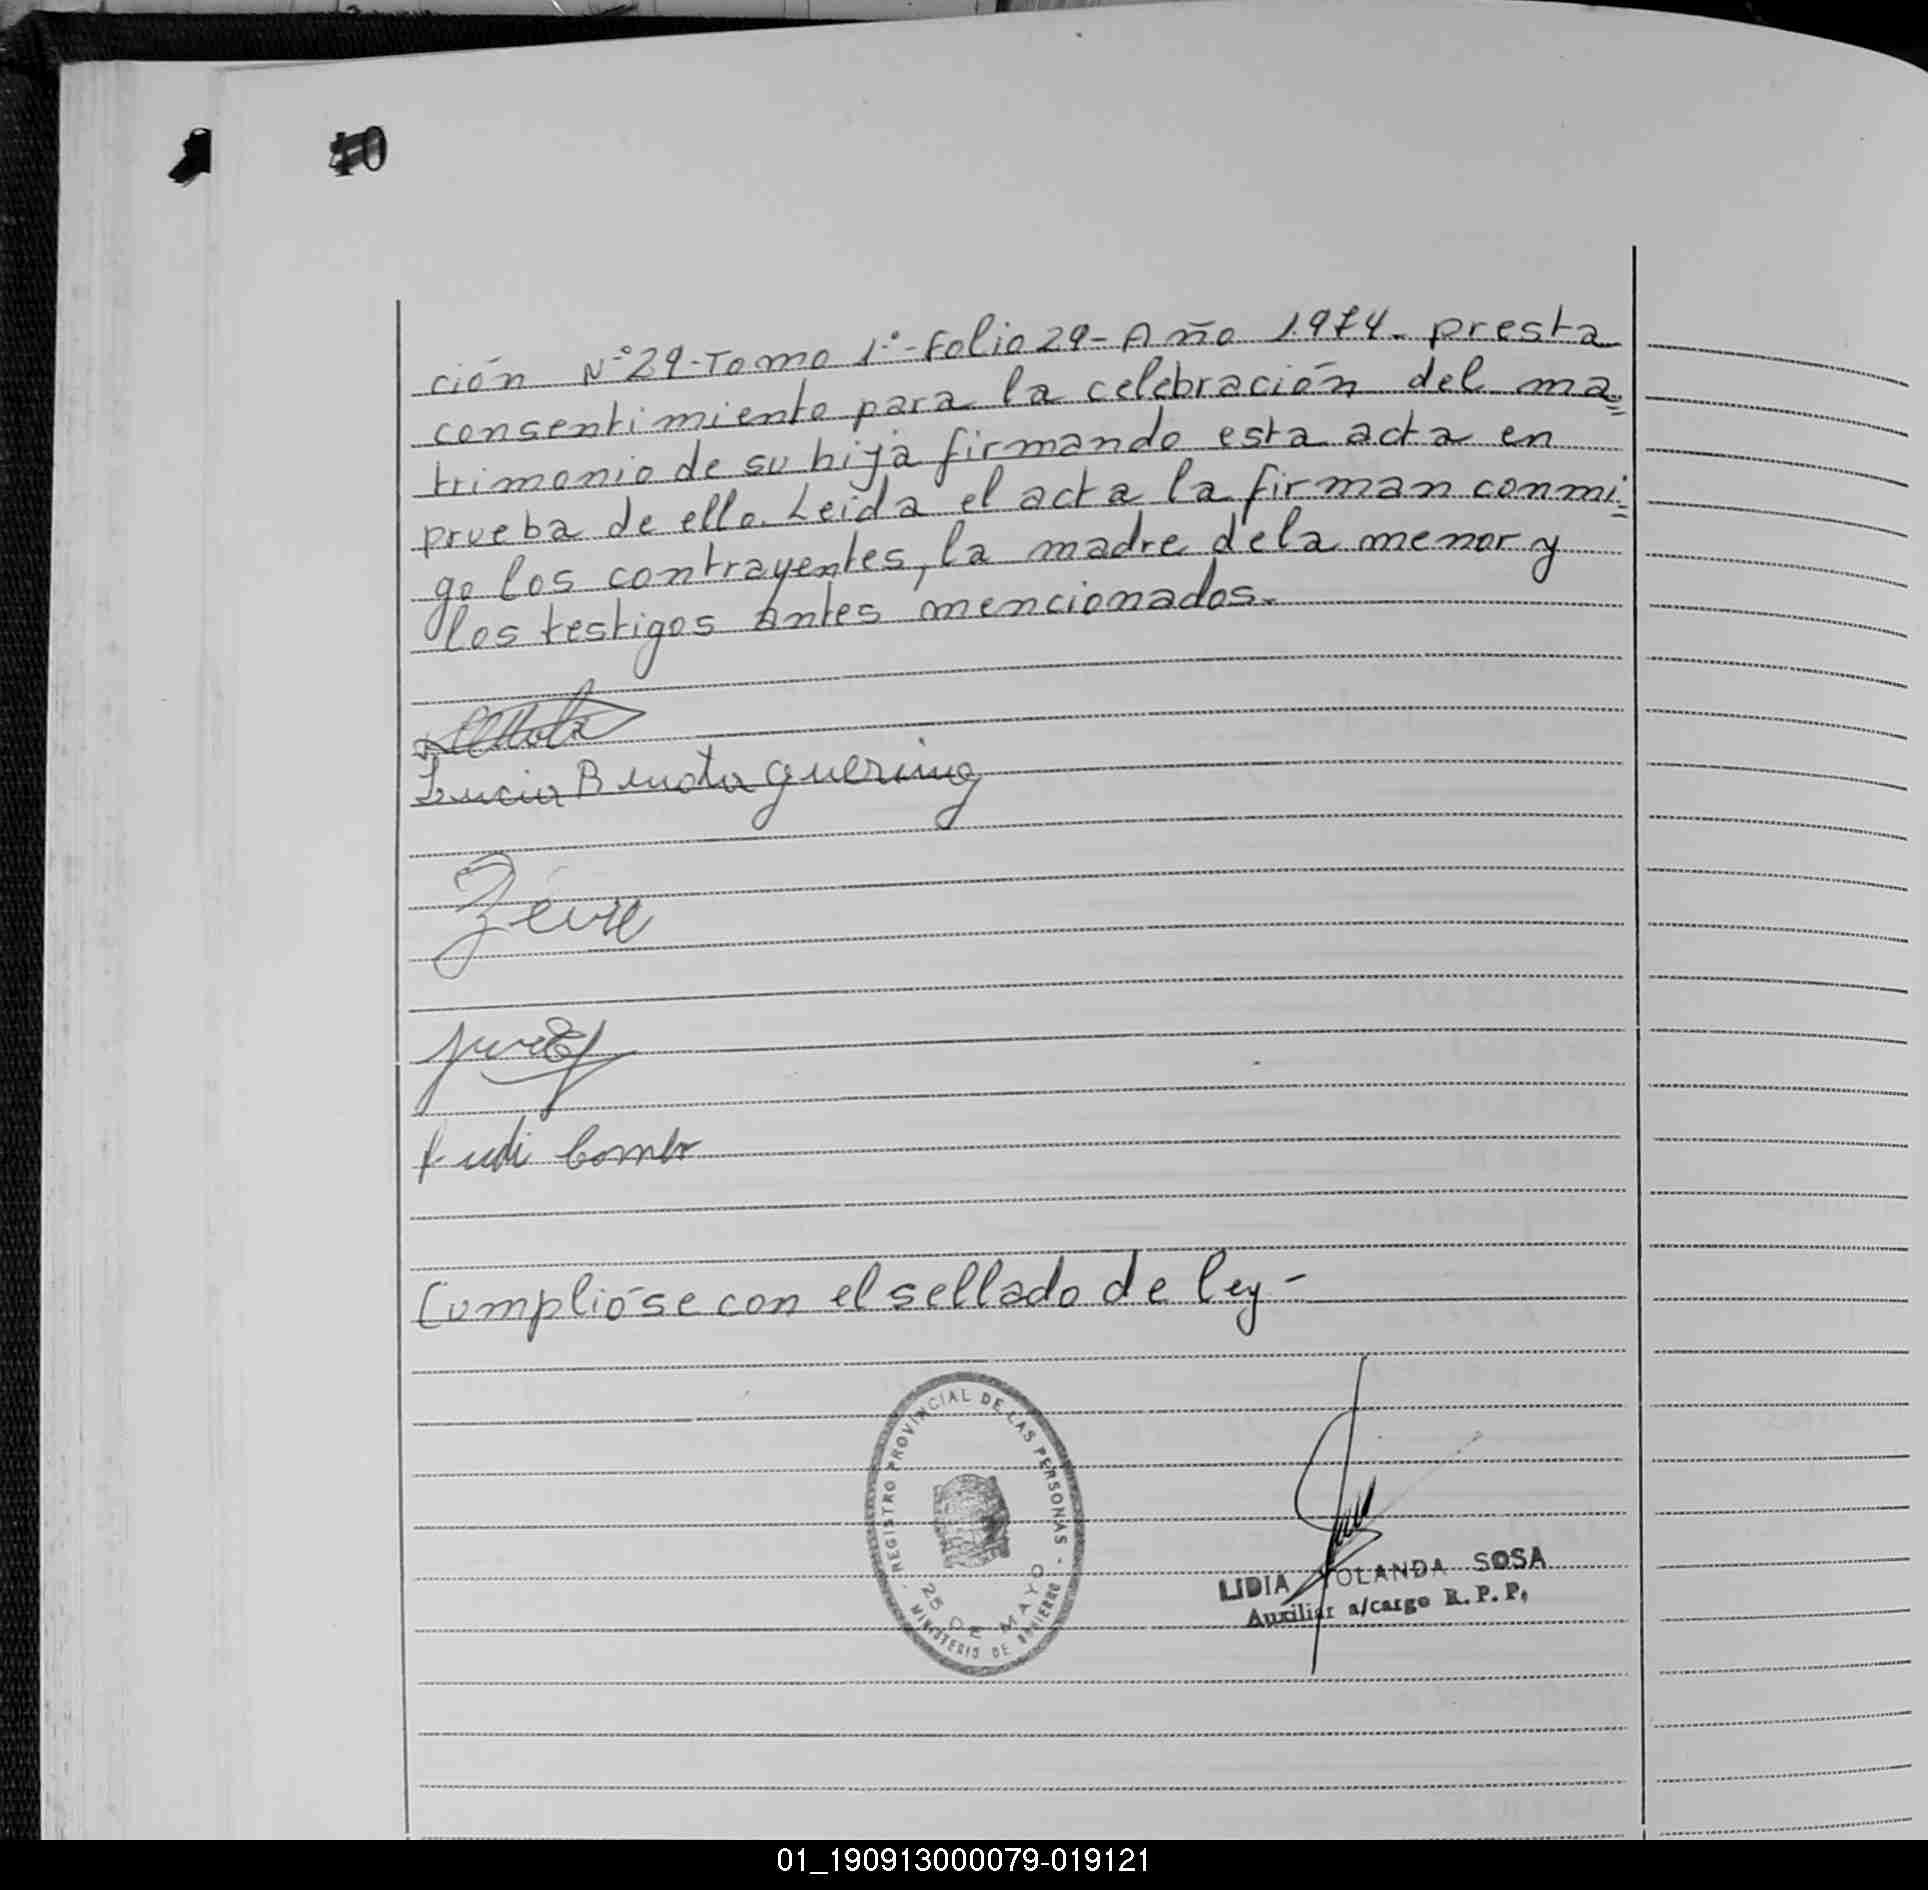 40
ción Nº 29-Tomo 1º-Folio 29-Año 1.974- presta
consentimiento para la celebración del ma=
trimonio de su hija firmando esta acta en
prueba de ello. Leida el acta la firman conmi=
go los contrayentes, la madre dela menor y
los testigos antes mencionados.-
Cumplióse con el sellado de ley-
· REGISTRO PROVINCIAL DE LAS PERSONAS ·
25 DE MAYO
MINISTERIO DE GOBIERNO
LIDIA YOLANDA SOSA
Auxiliar a/cargo R.P.P.
01_190913000079-019121